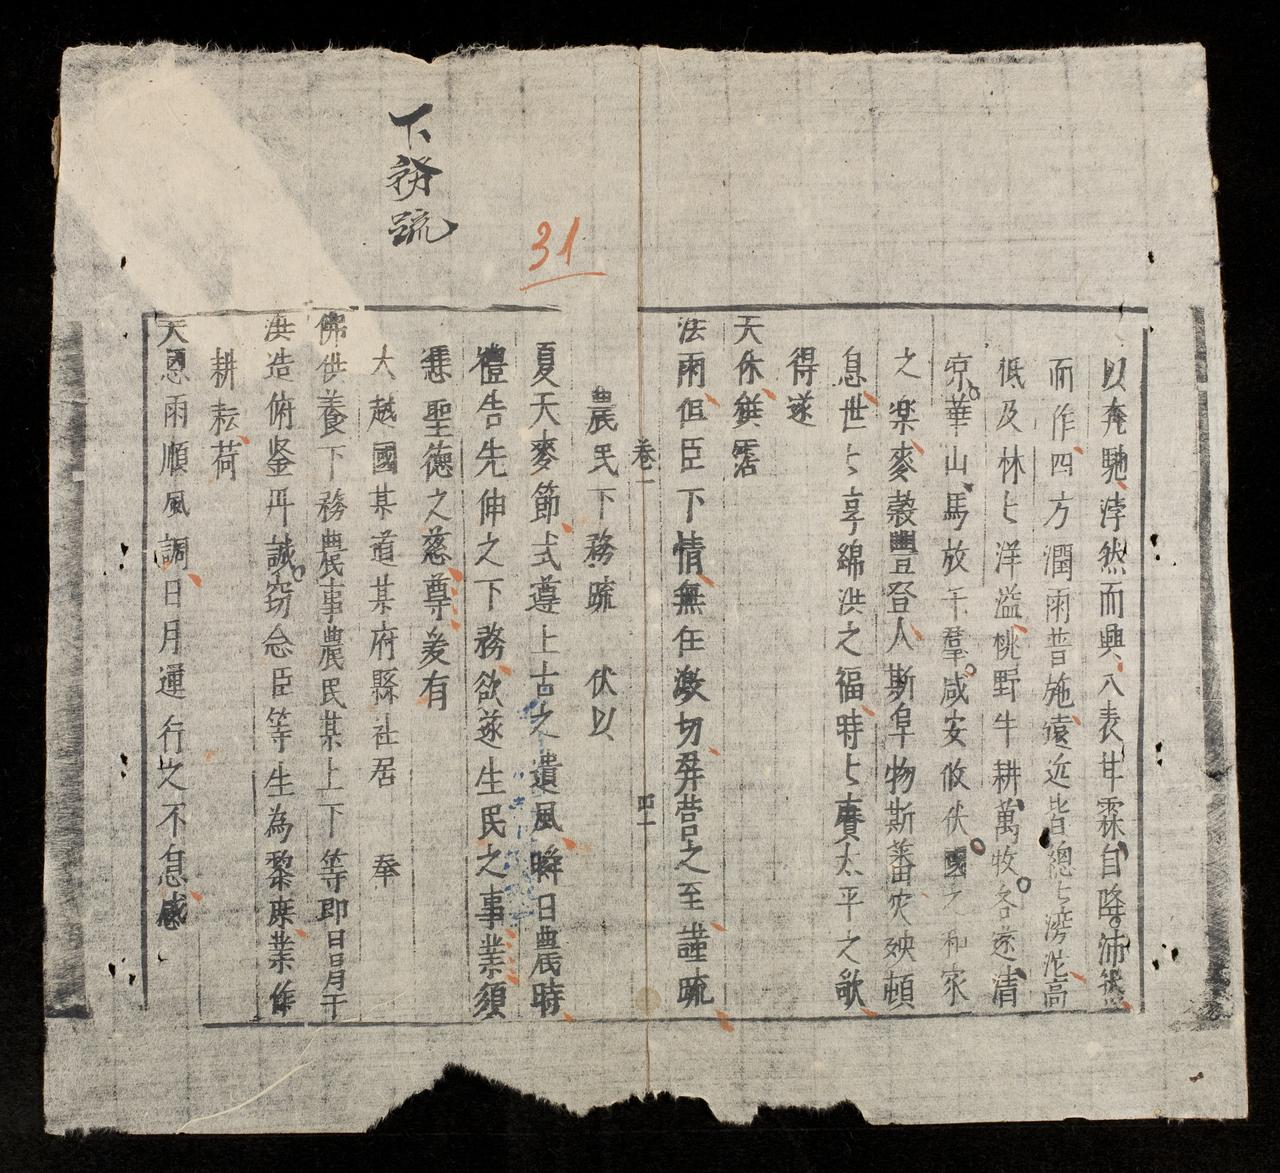 以奔馳浡然而興八表甘霖自降沛然
而作四方潤雨普施遠近皆總〻滂沱高
低及林〻洋溢桃野牛耕萬牧各遂清
凉華山馬放千羣咸安攸伏國之和家
之楽麥穀豊登人斯阜物斯蕃灾殃頓
息世〻享綿洪之福時〻賡太平之歌
得遂
天休鎂霑
法雨但臣下情無任激切屏营之至謹疏
卷一
四一
農民下務疏 伏以
夏天麥節式遵上古之遺風瞬日農時
禮告先伸之下務欲遂生民之事業須
慿聖德之慈尊爰有
大越國某道某府縣社居 奉
佛供養下務農事農民某上下等即日月干
洪造俯鉴丹誠窃念臣等生為黎庶業作
耕耘荷
天恩雨順風調日月運行之不怠感
下務疏
31